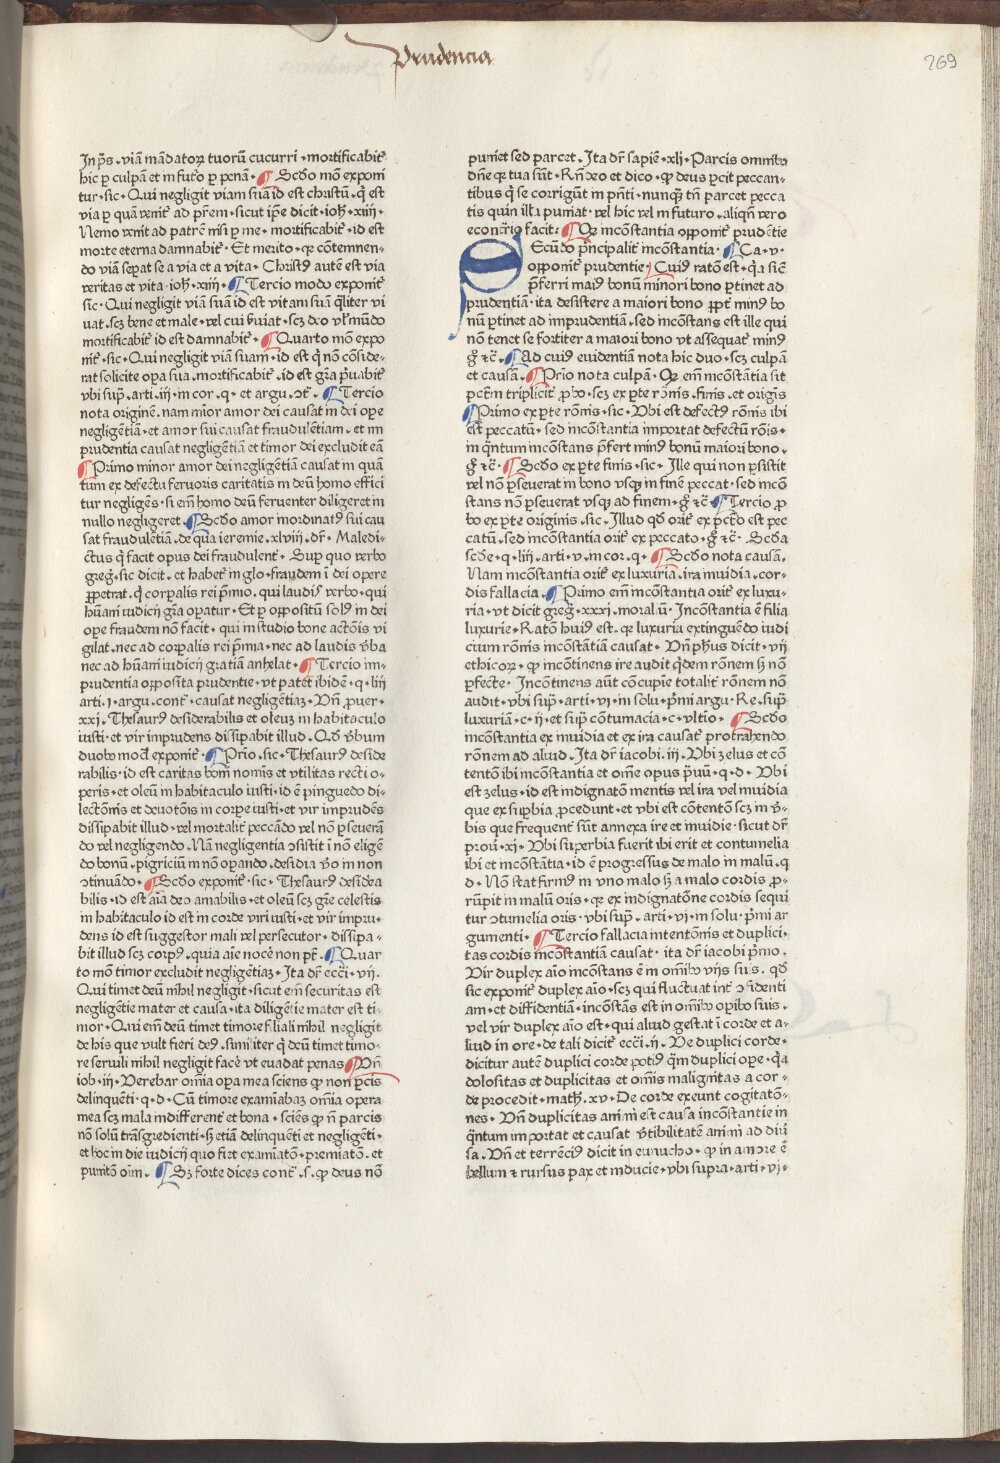 Prudencia
269
In p̄s . viā mādatoꝝ tuorū cucurri . mortificabit̄
hic ꝑ culpā et in fut̄o ꝑ penā . ¶ Scd̄o mō exponi
tur . sic . Qui negligit viam suā id est christū . q̄ est
via ꝑ quā venit̄ ad p̄rem . sicut ip̄e dicit . ioh̄ . xiiii .
Nemo venit ad patrē nisi ꝑ me . mortificabit̄ . id est
morte eterna damnabit̄ . Et merito . qꝛ cōtemnen-
do viā seꝑat se a via et a vita . Christꝰ autē est via
veritas et vita . ioh̄ . xiiii . ¶ Tercio modo exponit̄
sic . Qui negligit viā suā id est vitam suā q̄liter vi
uat . scꝫ bene et male . vel cui ƀuiat . scꝫ deo vl̄ mūdo
mortificabit̄ id est damnabit̄ . ¶ Quarto mō expo
nit̄ . sic . Qui negligit viā suam . id est q̄ nō cōside-
rat solicite oꝑa sua . mortificabit̄ . id est gr̄a p̄uabit̄
vbi sup̄ . arti . iii . in cor . q . et argu . ꝯt̄ . ¶ Tercio
nota originē . nam mīor amor dei causat in dei oꝑe
negligētiā . et amor sui causat fraudulētiam . et im
prudentia causat negligētiā et timor dei excludit eā
¶ Primo minor amor dei negligētiā causat in quā
tum ex defectu feruoris caritatis in deū homo effici
tur negligēs . si em̄ homo deū feruenter diligeret in
nullo negligeret . ¶ Scd̄o amor inordinatꝰ sui cau
sat fraudulētiā . de qua ieremie . xlviii . dr̄ . Maledi-
ctus q̄ facit opus dei fraudulent̄ . Sup̄ quo verbo
greḡ . sic dicit . et habet̄ in glo . fraudem ī dei opere
ꝑpetrat . q̄ corꝑalis rei p̄mio . qui laudis verbo . qui
hūani iudicii gr̄a oꝑatur . Et ꝑ oppositū solꝰ in dei
oꝑe fraudem nō facit . qui in studio bone actōis vi
gilat . nec ad corꝑalis rei p̄mia . nec ad laudis v̄ba
nec ad hūani iudicii gratiā anhelat . ¶ Tercio im-
prudentia opposita prudentie . vt patet ibidē . q . liiii
arti . i . argu . cont̄ . causat negligētiaꝫ . Vn̄ . ꝓuer .
xxi . Thesaurꝰ desiderabilis et oleuꝫ in habitaculo
iusti . et vir imprudens dissipabit illud . Qd̄ v̄bum
duobꝰ modꝭ exponit̄ . ¶ Prīo . sic . Thesaurꝰ deside
rabilis . id est caritas boni nomīs et vtilitas recti o-
peris . et oleū in habitaculo iusti . id ē pinguedo di-
lectōnis et deuotōis in corpe iusti . et vir imprudēs
dissipabit illud . vel mortalit̄ peccādo vel nō ꝑseuerā
do vel negligendo . Nā negligentia ꝯsistit ī nō eligē
do bonū . pigriciū in nō oꝑando . desidia v̄o in non
ꝯtinuādo . ¶ Scd̄o exponit̄ . sic . Thesaurꝰ desidea
bilis . id est aīa deo amabilis . et oleū scꝫ gr̄e celestis
in habitaculo id est in corde viri iusti . et vir impru-
dens id est suggestor mali vel persecutor . dissipa-
bit illud scꝫ corpꝰ . quia aie nocē non pt̄ . ¶ Quar
to mō timor excludit negligētiaꝫ . Ita dr̄ eccī . vii .
Qui timet deū nihil negligit . sicut em̄ securitas est
negligētie mater et causa . ita diligētie mater est ti-
mor . Qui em̄ deū timet timore filiali nihil negligit
de his que vult fieri deꝰ . similiter q̄ deū timet timo-
re seruili nihil negligit facē vt euadat penas ¶ Vn̄
iob . iii . Verebar om̄ia oꝑa mea sciens ꝙ non ꝑcis
delinquēti . q . d . Cū timore examīabaꝫ om̄ia opera
mea scꝫ mala indifferent̄ et bona . sciēs ꝙ n̄ parcis
nō solū trāsgredienti . sꝫ etiā delinquēti et negligēti .
et hoc in die iudicii quo fiet examīatō . premiatō . et
punitō oīm . ¶ Sꝫ forte dices cont̄ . s . ꝙ deus nō
puniet sed parcet . Ita dr̄ sapiē . xli . Parcis omnibꝰ
dn̄e qꝛ tua sūt . Rn̄deo et dico . ꝙ deus ꝑcit peccan-
tibus q̄ se corrigūt in p̄nti . nunqꝫ tn̄ parcet pecca
tis quin illa puniat . vel hic vel in futuro . aliqn̄ vero
econt̄rio facit . ¶ Qꝛ incōstantia opponit̄ prudētie
Secūdo p̄ncipalit̄ incōstantia . ¶ Ca . v .
opponit̄ prudentie . Cuiꝰ ratō est . q̄a sic̄
p̄ferri maiꝰ bonū minori bono ꝑtinet ad
prudentiā . ita desistere a maiori bono ꝓpt̄ minꝰ bo
nū ꝑtinet ad imprudentiā . sed incōstans est ille qui
nō tenet se fortiter a maiori bono vt assequat̄ minꝰ
g̊ ⁊c̄ . ¶ Ad cuiꝰ euidentiā nota hic duo . scꝫ culpā
et causā . ¶ Prīo nota culpā . Qꝛ em̄ incōstātia sit
pctm̄ triplicit̄ ꝓbo . scꝫ ex ꝑte rōnis . finis . et origīs
¶ Primo ex ꝑte rōnis . sic . Vbi est defectꝰ rōnis ibi
est peccatū . sed incōstantia importat defectū rōis .
in q̄ntum incōstans p̄fert minꝰ bonū maiori bono .
g̊ ⁊c̄ . ¶ Scd̄o ex ꝑte finis . sic . Ille qui non ꝑsistit
vel nō ꝑseuerat in bono vsqꝫ in finē peccat . sed incō
stans nō ꝑseuerat vsqꝫ ad finem . g̊ ⁊c̄ ¶ Tercio ꝓ
bo ex ꝑte originis . sic . Illud qd̄ orit̄ ex pctō est pec
catū . sed incōstantia orit̄ ex peccato . g̊ ⁊c̄ . Scd̄a
scd̄e . q . liii . arti . v . in cor . q . ¶ Scd̄o nota causā .
Nam incōstantia orit̄ ex luxuria . ira inuidia . cor-
dis fallacia . ¶ Primo em̄ incōstantia orit̄ ex luxu-
ria . vt dicit greḡ . xxxi . moralīu . Incōstantia ē filia
luxurie . Ratō huiꝰ est . qꝛ luxuria extinguēdo iudi
cium rōnis incōstātiā causat . Vn̄ pħus dicit . vii
ethicoꝝ . ꝙ incōtinens ire audit q̄dem rōnem sꝫ nō
ꝑfecte . Incōtinens aūt cōcupīe totalit̄ rōnem nō
audit . vbi sup̄ . arti . vi . in solu . p̄mi argu . Re . sup̄
luxuriā . c . ii . et sup̄ cōtumacia . c . vltīo . ¶ Scd̄o
incōstantia ex inuidia et ex ira causat̄ protrahendo
rōnem ad aliud . Ita dr̄ iacobi . iii . Vbi zelus et cō
tentō ibi incōstantia et om̄e opus p̄uū . q . d . Vbi
est zelus . id est indignatō mentis vel ira vel inuidia
que ex suꝑbia ꝓcedunt . et vbi est cōtentō scꝫ in v̄-
bis que frequent̄ sūt annexa ire et inuidie . sicut dr̄
prou̇ . xi . Vbi suꝑbia fuerit ibi erit et contumelia
ibi et incōstātia . id ē progressus de malo in malū . q
d . Nō stat firmꝰ in vno malo sꝫ a malo cordis ꝓ-
rūpit in malū oris . qꝛ ex indignatōne cordis sequi
tur ꝯtumelia oris . vbi sup̄ . arti . vi . in solu . p̄mi ar
gumenti . ¶ Tercio fallacia intentōnis et duplici-
tas cordis incōstantiā causat . ita dr̄ iacobi p̄mo .
Vir duplex aīo incōstans ē in om̄ibꝰ vijs suis . qd̄
sic exponit̄ duplex aīo . scꝫ qui fluctuat int̄ ꝯfidenti
am . et diffidentiā . incōstās est in om̄ibꝰ oꝑibꝰ suis .
vel vir duplex aīo est . qui aliud gestat ī corde et a-
liud in ore . de tali dicit̄ eccī . ii . Ve duplici corde .
dicitur autē duplici corde potiꝰ q̄m duplici ope . q̄a
dolositas et duplicitas et om̄is malignitas a cor-
de procedit . math̄ . xv . De corde exeunt cogitatō-
nes . Vn̄ duplicitas animi est causa incōstantie in
q̄ntum importat et causat v̄tibilitatē animi ad diū
sa . Vn̄ et terrēciꝰ dicit in eunucho . ꝙ in amore ē
bellum ⁊ rursus pax et inducie . vbi supra . arti . vi .